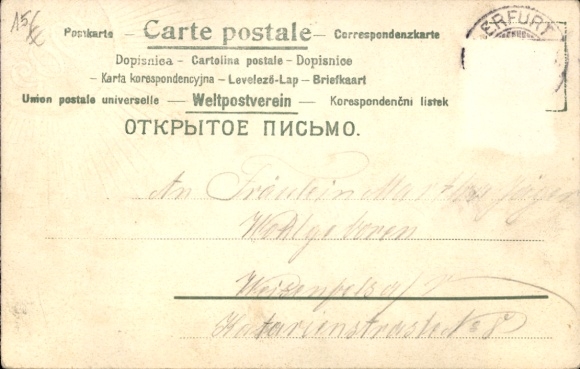 156
Postkarte — Carte postale — Correspondenzkarte
Dopisnica — Cartolina postale — Dopisnice
— Karta korespondencyjna — Levelező-Lap — Briefkaart
Union postale universelle — Weltpostverein — Korespondenční listek
ОТКРЫТОЕ ПИСЬМО.
ERFURT
An Fräulein Martha Jäger
Wohlgeboren
Weißenfels a/
Katarienstrasse No 8